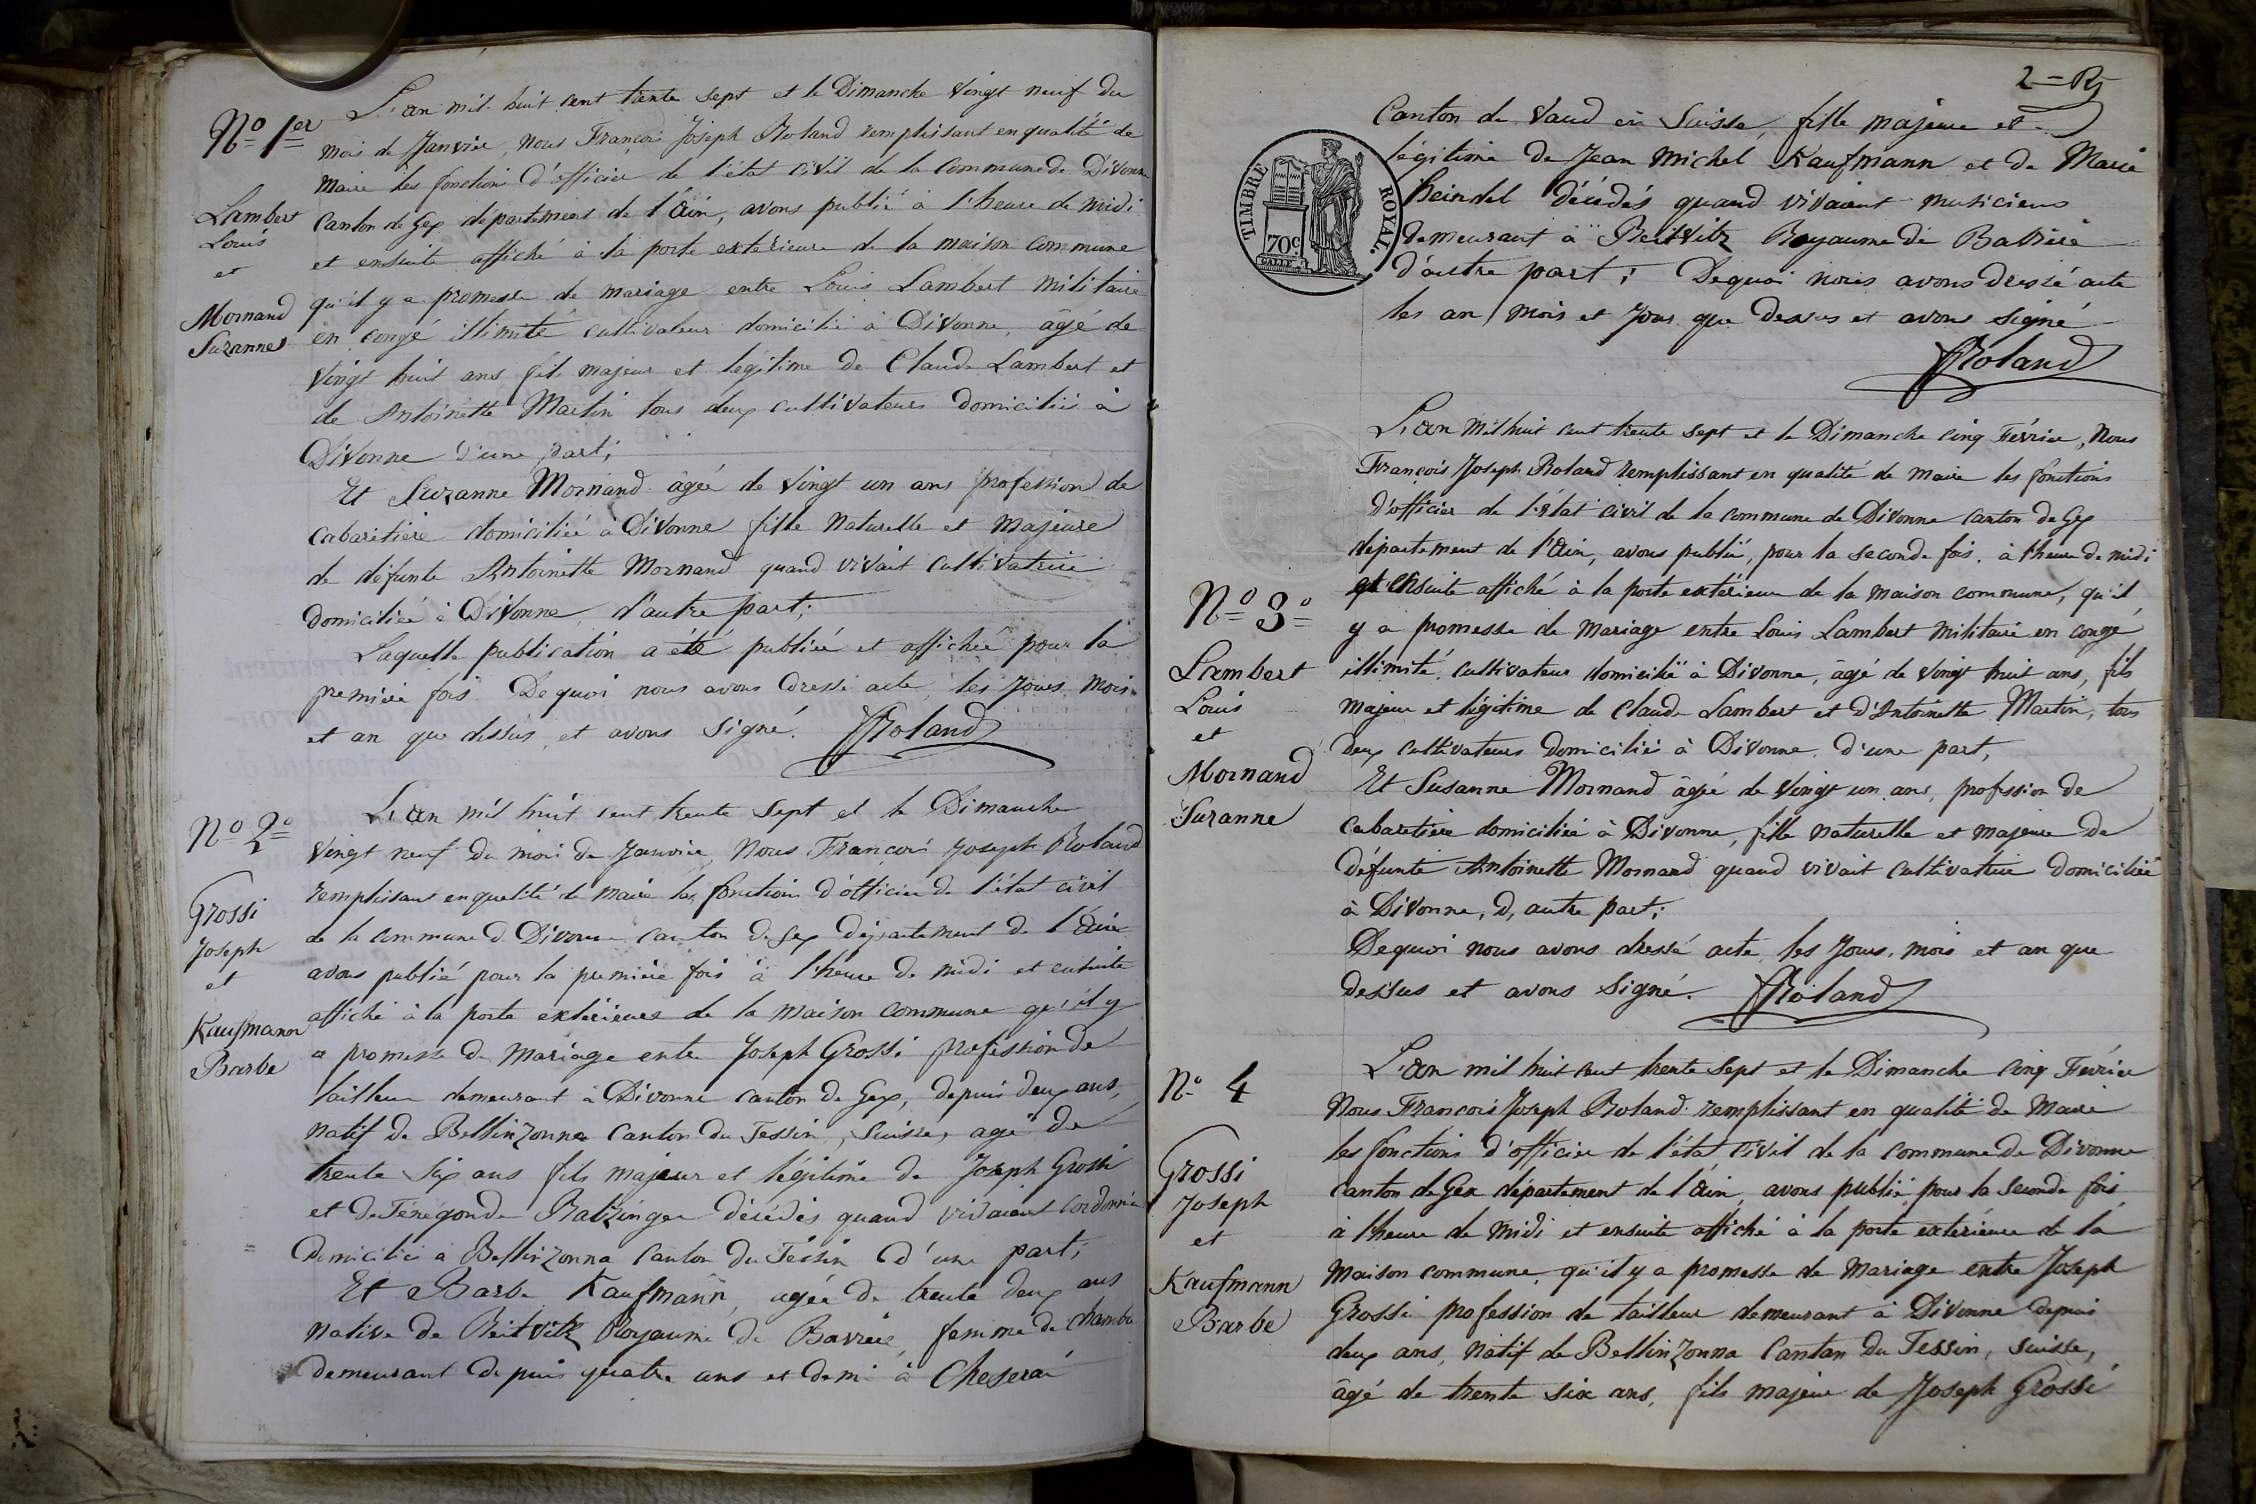 N.o 1er
Lambert
Louis
et
Mornand
Suzanne
L'an mil huit cent trente sept et le Dimanche vingt neuf du
mois de Janvier, nous François Joseph Roland remplissant en qualité de
Maire les fonctions d'officier de l'état civil de la commune de Divonne
Canton de Gex département de l'Ain, avons publié à l'heure de midi
et ensuite affiché à la porte extérieure de la maison commune
qu'il y a promesse de mariage entre Louis Lambert militaire
en congé illimité cultivateur domicilié à Divonne, âgé de
vingt huit ans fils majeur et légitime de Claude Lambert et
de Antoinette Martin tous deux cultivateurs domiciliés à
Divonne d'une part;
Et Suzanne Mornand âgée de vingt un ans profession de
cabaretière domiciliée à Divonne fille naturelle et majeure
de défunte Antoinette Mornand quand vivait cultivatrice
domiciliée à Divonne, d'autre part;
Laquelle publication a été publiée et affichée pour la
première fois. De quoi nous avons dressé acte, les jours, mois
et an que dessus, et avons signé. FRoland
N.o 2.o
Grossi
Joseph
et
Kaufmann
Barbe
L'an mil huit cent trente sept et le Dimanche
vingt neuf du mois de Janvier, Nous François Joseph Roland
remplissant en qualité de Maire les fonctions d'officier de l'état civil
de la commune de Divonne canton de Gex département de l'Ain
avons publié pour la première fois à l'heure de midi et ensuite
affiché à la porte extérieures de la maison commune qu'il y
a promesse de mariage entre Joseph Grossi profession de
tailleur demeurant à Divonne canton de Gex, depuis deux ans,
natif de Bellinzonne Canton du Tessin, Suisse, agé de
trente six ans fils majeur et légitime de Joseph Grossi
et de Ratzinger décédés quand vivaient cordonnier
Domicilié à Bellinzonna Canton du Tessin d'une part;
Et Barbe Kaufmann, agée de trente deux ans
native de Reitvitz Royaume de Bavière, femme de chambre
demeurant depuis quatre ans et demi à Cheseraé
2=
Canton de Vaud en Suisse, fille majeure et
légitime de Jean Michel Kaufmann et de Marie
Heindel décédés quand vivaient musiciens
demeurant à Reitvitz Royaume de Bavière
d'autre part; De quoi nous avons dressé acte
les an, mois et jour que dessus et avons signé
FRoland
TIMBRE ROYAL.
70c
GALLE
N.o 3.o
Lambert
Louis
et
Mornand
Suzanne
L'an mil huit cent trente sept et le Dimanche cinq Février, Nous
François Joseph Roland remplissant en qualité de Maire les fonctions
d'officier de l'état civil de la commune de Divonne canton de Gex
département de l'Ain, avons publié, pour la seconde fois, à l'heure de midi
et ensuite affiché à la porte extérieure de la maison commune, qu'il
y a promesse de Mariage entre Louis Lambert militaire en congé
illimité, cultivateur domicilié à Divonne, âgé de vingt huit ans, fils
majeur et légitime de Claude Lambert et d'Antoinette Martin, tous
deux cultivateurs domiciliés à Divonne, d'une part,
Et Susanne Mornand âgée de vingt un ans, profession de
cabaretière domiciliée à Divonne, fille naturelle et majeure de
défunte Antoinette Mornand quand vivait cultivatrice domiciliée
à Divonne, d, autre part;
De quoi nous avons dressé acte, les jours, mois et an que
dessus et avons signé. FRoland
N.o 4
Grossi
Joseph
et
Kaufmann
Barbe
L'an mil huit cent trente sept et le Dimanche cinq Février
Nous François Joseph Roland remplissant en qualité de Maire
les fonctions d'officier de l'état civil de la commune de Divonne
canton de Gex département de l'Ain, avons publié pour la seconde fois
à l'heure de midi et ensuite affiché à la porte extérieure de la
Maison commune, qu'il y a promesse de Mariage entre Joseph
Grossi profession de tailleur demeurant à Divonne depuis
deux ans, natif de Bellinzonna Canton du Tessin, Suisse,
âgé de trente six ans, fils majeur de Joseph Grossi